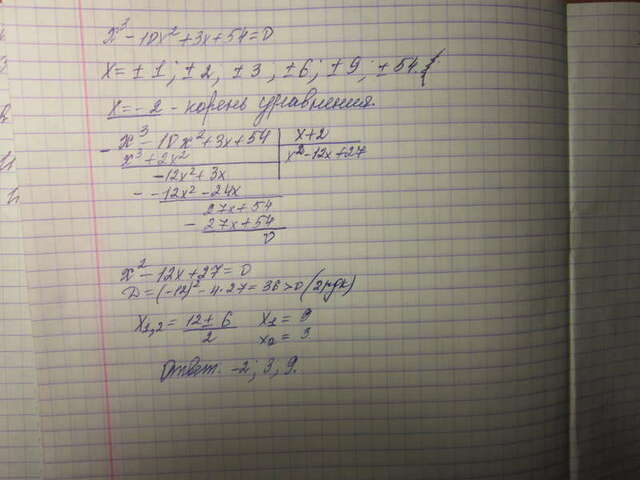 x³ - 10x² + 3x + 54 = 0
x = ± 1 ; ± 2, ± 3, ± 6 ; ± 9 ; ± 54.
x = - 2 - корень уравнения.
- x³ - 10x² + 3x + 54 | x + 2
x³ + 2x² | x² - 12x + 27
-12x² + 3x
- -12x² - 24x
27x + 54
- 27x + 54
0
x² - 12x + 27 = 0
D = (-12)² - 4·27 = 36 > 0 (2рдк)
x1,2 = (12 ± 6)/2 x1 = 9
x2 = 3
Ответ. -2 ; 3 ; 9.